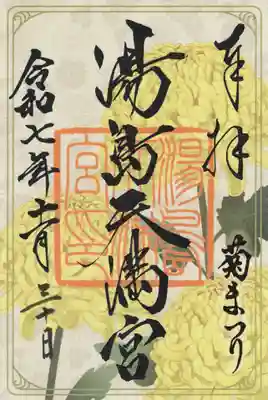 奉拝
菊まつり
湯島天満宮
令和七年十一月三十日